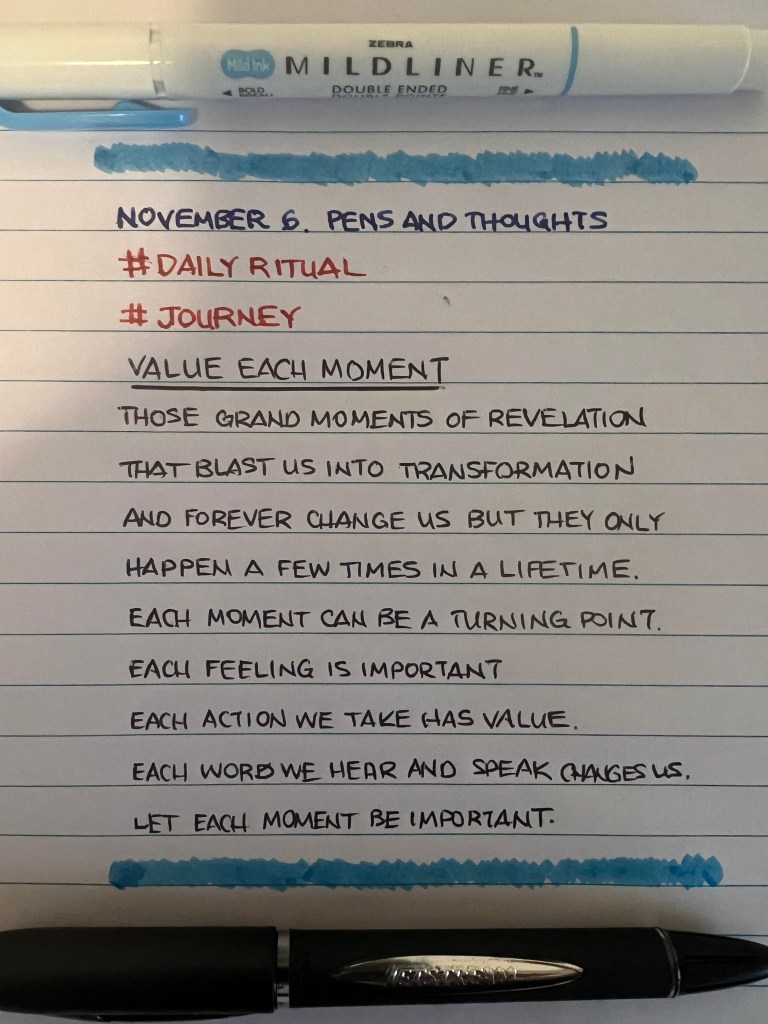 ZEBRA
Mild Ink MILDLINER™
◄ BOLD DOUBLE ENDED FINE ►
DOUBLE POINTS
NOVEMBER 6. PENS AND THOUGHTS
#DAILY RITUAL
# JOURNEY
VALUE EACH MOMENT
THOSE GRAND MOMENTS OF REVELATION
THAT BLAST US INTO TRANSFORMATION
AND FOREVER CHANGE US BUT THEY ONLY
HAPPEN A FEW TIMES IN A LIFETIME.
EACH MOMENT CAN BE A TURNING POINT.
EACH FEELING IS IMPORTANT
EACH ACTION WE TAKE HAS VALUE.
EACH WORD WE HEAR AND SPEAK CHANGES US.
LET EACH MOMENT BE IMPORTANT.